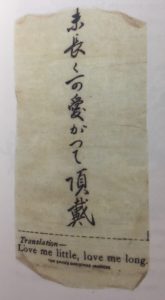 末長く可愛がつて頂戴
Translation—
Love me little, love me long.